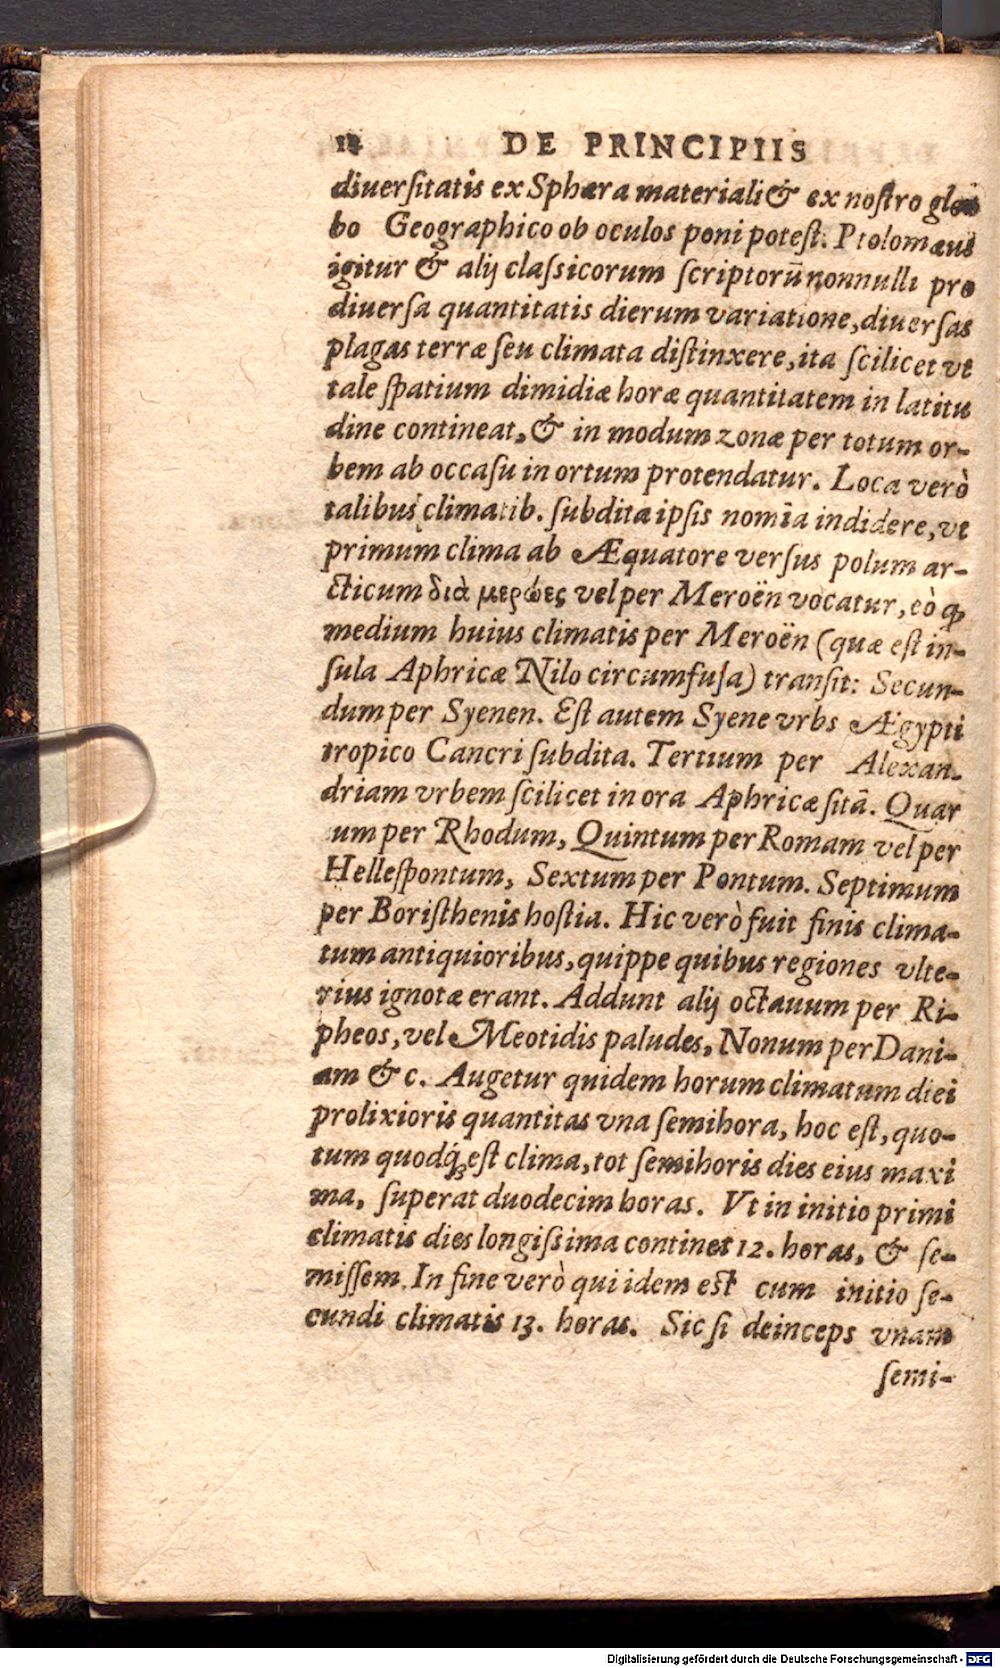 DE PRINCIPIIS
diuerſitatis ex Sphæra materiali & ex noſtro
bo Geographico ob oculos poni poteſt. Ptolomæus
igitur & alij claſsicorum ſcriptorũ nonnulli pro
diuerſa quantitatis dierum variatione, diuerſas
plagas terræ ſeu climata diſtinxere, ita ſcilicet vt
tale ſpatium dimidiæ horæ quantitatem in latitu
dine contineat, & in modum zonæ per totum or-
bem ab occaſu in ortum protendatur. Loca verò
talibus climatib. ſubdita ipſis nomĩa indidere, vt
primum clima ab Æquatore verſus polum ar-
cticum διὰ μερόες vel per Meroën vocatur, eò ꝙ
medium huius climatis per Meroën (quæ eſt in-
ſula Aphricæ Nilo circumfuſa) tranſit: Secun-
dum per Syenen. Eſt autem Syene vrbs Ægypti
tropico Cancri ſubdita. Tertium per Alexan-
driam vrbem ſcilicet in ora Aphricæ ſitã. Quar
um per Rhodum, Quintum per Romam vel per
Helleſpontum, Sextum per Pontum. Septimum
per Boriſthenis hoſtia. Hic verò fuit finis clima-
tum antiquioribus, quippe quibus regiones vlte-
rius ignotæ erant. Addunt alij octauum per Ri-
pheos, vel Meotidis paludes, Nonum per Dani-
am &c. Augetur quidem horum climatum diei
prolixioris quantitas vna ſemihora, hoc eſt, quo-
tum quodq́; eſt clima, tot ſemihoris dies eius maxi
ma, ſuperat duodecim horas. Vt in initio primi
climatis dies longiſsima continet 12. horas, & ſe-
miſſem. In fine verò qui idem eſt cum initio ſe-
cundi climatis 13. horas. Sic ſi deinceps vnam
ſemi-
Digitalisierung gefördert durch die Deutsche Forschungsgemeinschaft - DFG